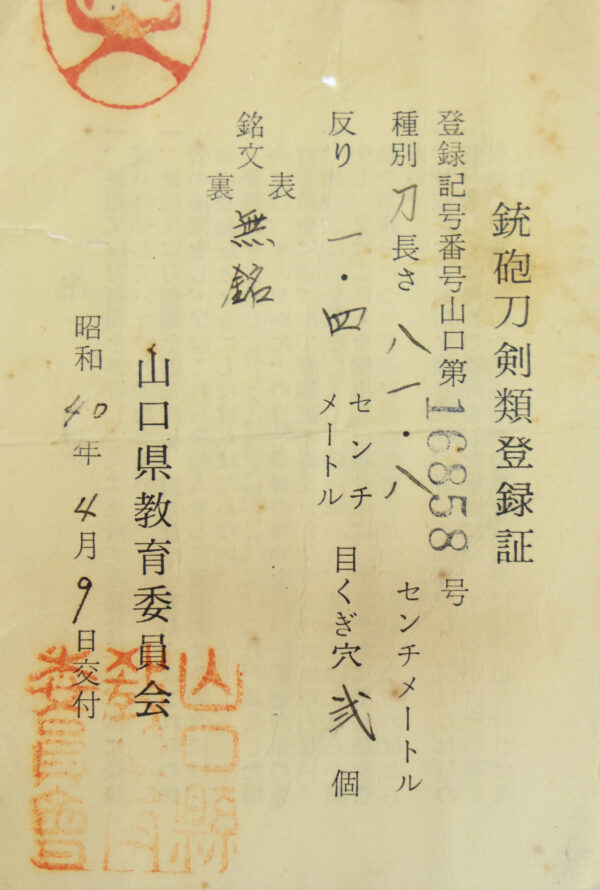 銃砲刀剣類登録証
登録記号番号山口第16858号
種別 刀 長さ 八一・八 センチメートル
反り 一・四 センチメートル 目くぎ穴 弐 個
銘文 表 無銘
裏
山口県教育委員会
昭和40年4月9日交付
山口縣
教育
委員會